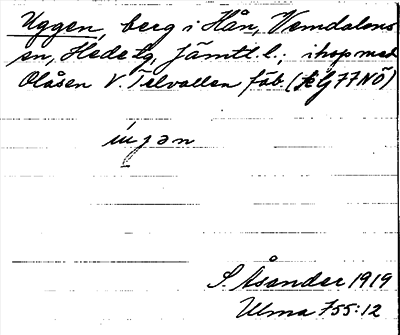 Uggen, berg i Hån, Vemdalens
sn, Hede tg, Jämtl. l.; ihop med
Olåsen V. Telvallen fäb. (G77NÖ)
ı̵ɯ̀jən
S. Åsander 1919
Ulma 755:12